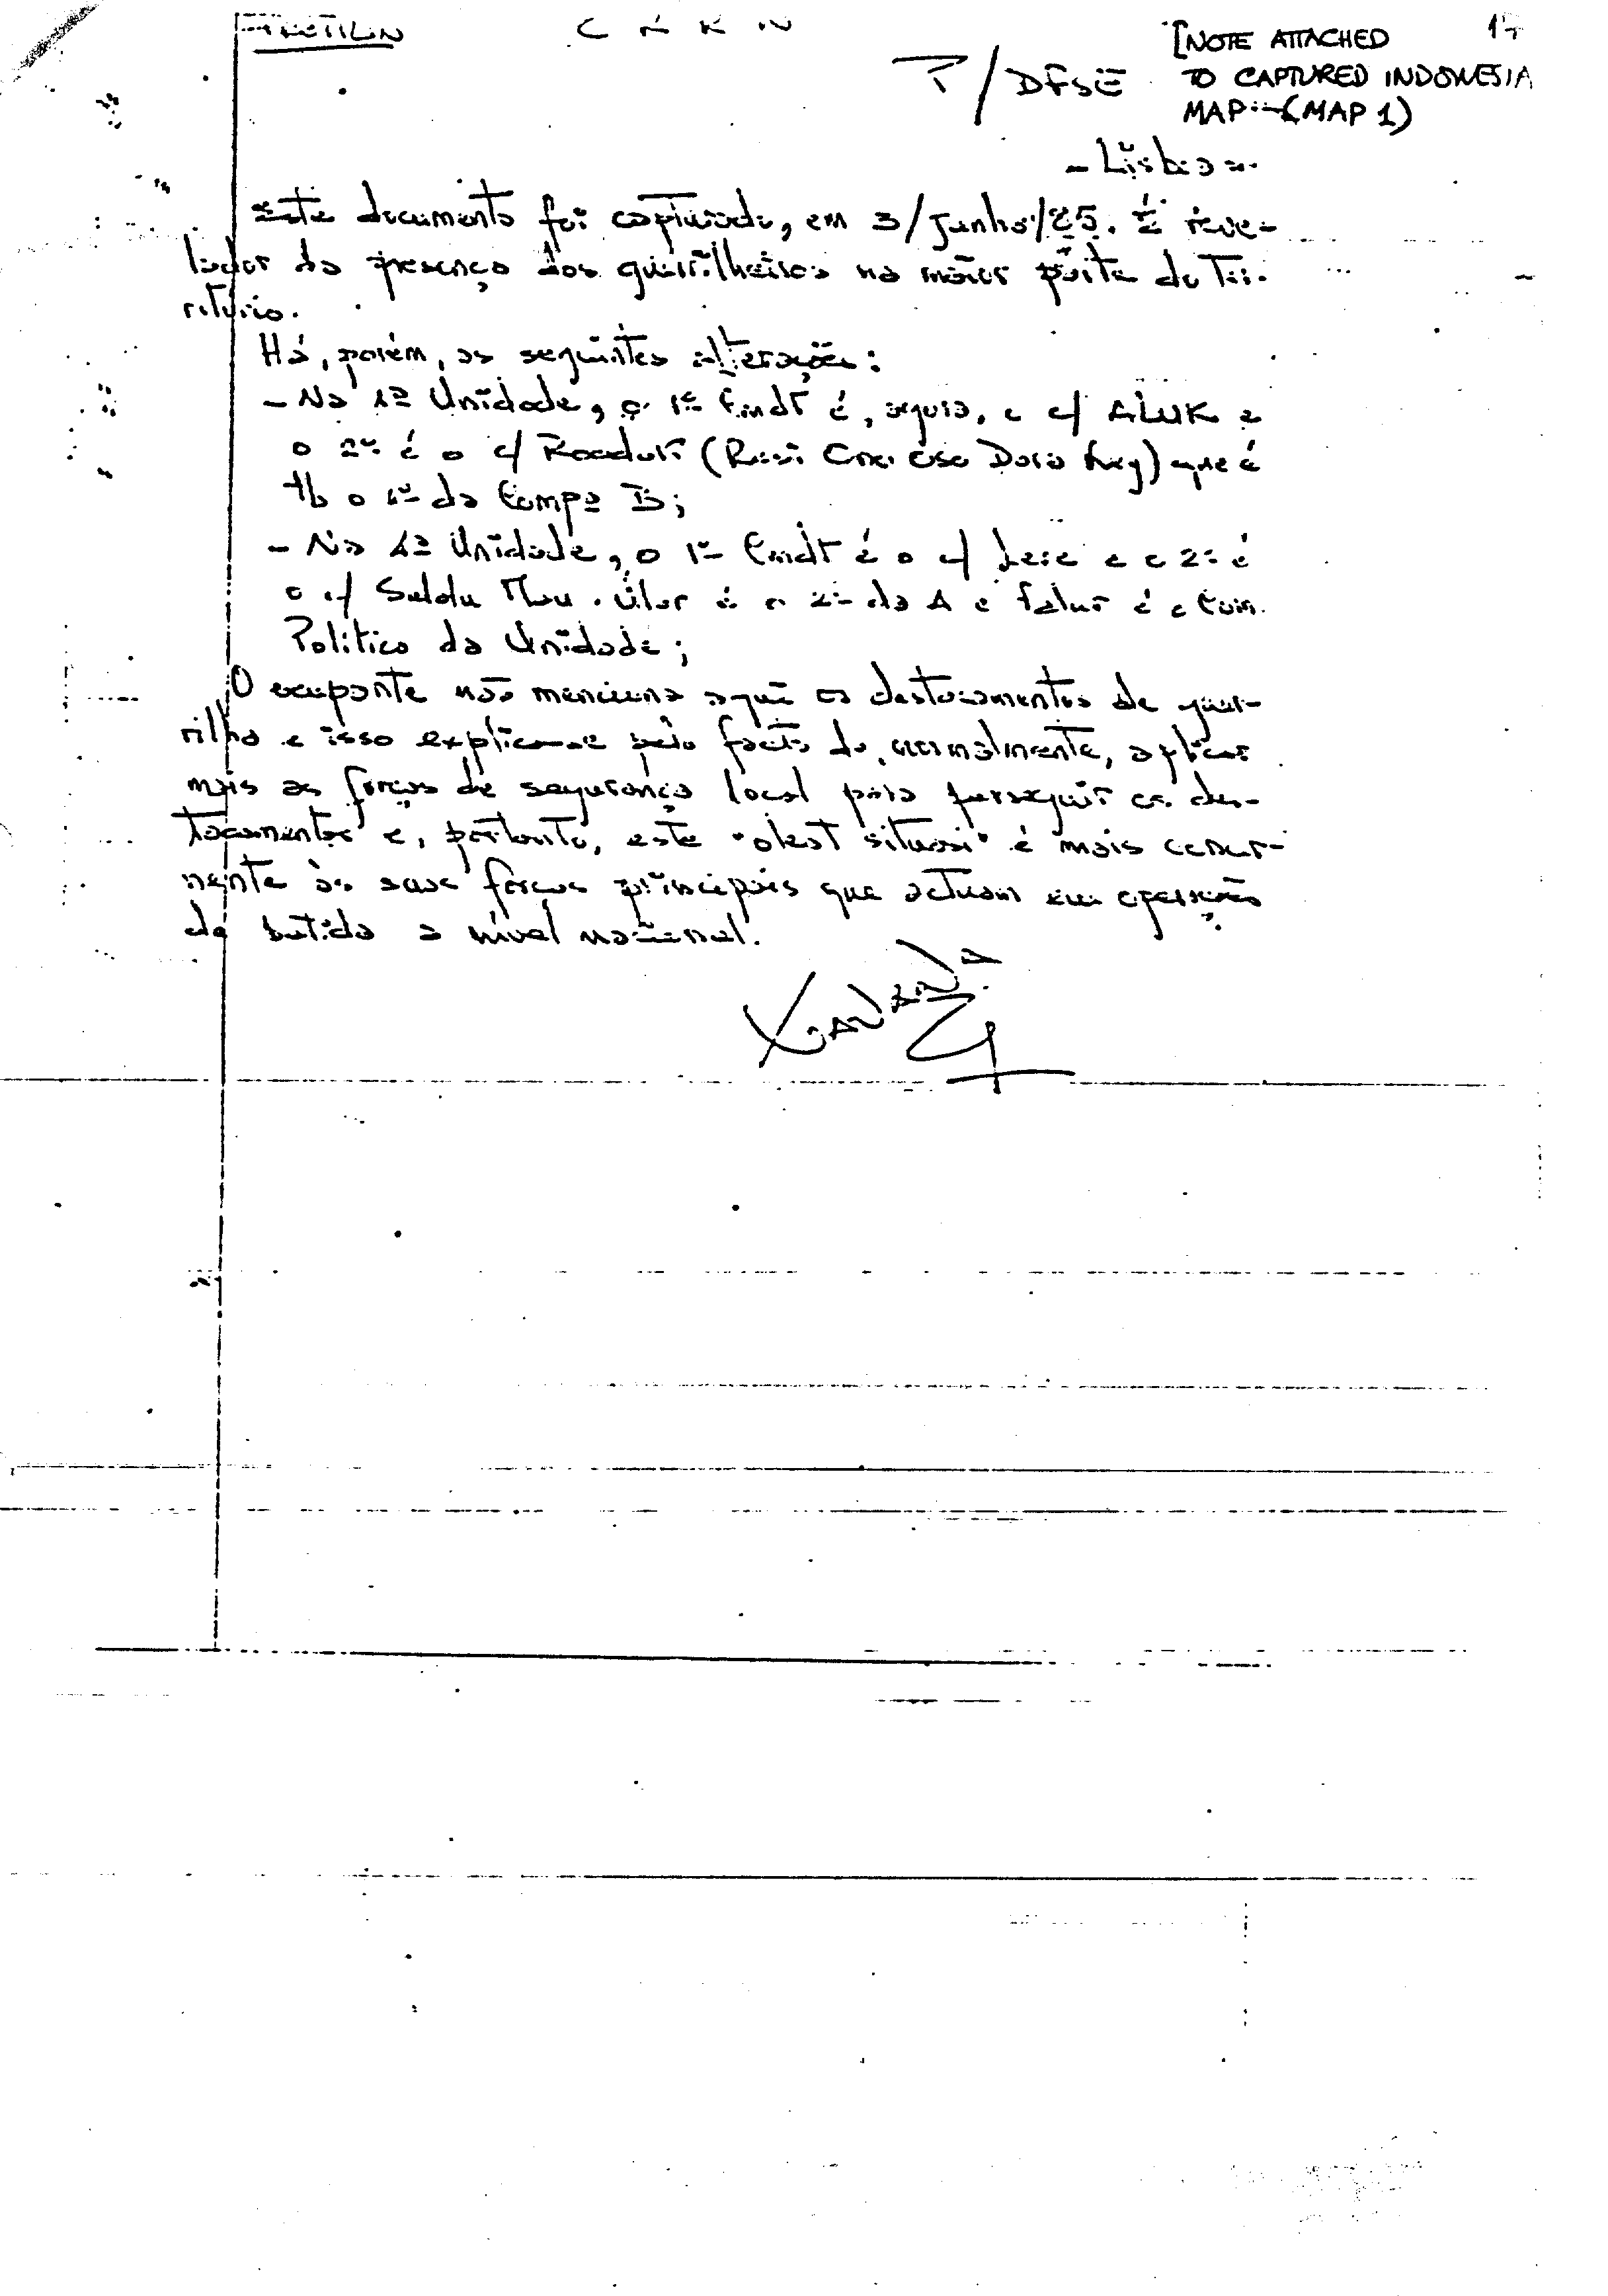 FRETILIN C R R N
[NOTE ATTACHED
TO CAPTURED INDONESIA
MAP (MAP 1)
P/DFSE
- Lisboa -
Este documento foi capturado, em 3/Junho/85. É reve-
lador da presença dos guerrilheiros na maior parte do Ter-
ritório.
Há, porém, as seguintes alterações:
- Na 1ª Unidade, o 1º Cmdt é, agora, o c/ ALUK e
o 2º é o c/ que é
tb o 1º da Compª B;
- Na 4ª Unidade, o 1º Cmdt é o c/ e o 2º é
o c/ Saldu Mau. é o 2º da A e é o Com.
Político da Unidade;
O ocupante não menciona aqui os destacamentos de guer-
rilha e isso explica-se pelo facto de, normalmente, aplicar
mais as forças de segurança local para perseguir os des-
tacamentos e, portanto, este é mais concer-
nente às suas forças principais que actuam em operações
de batida a nível nacional.